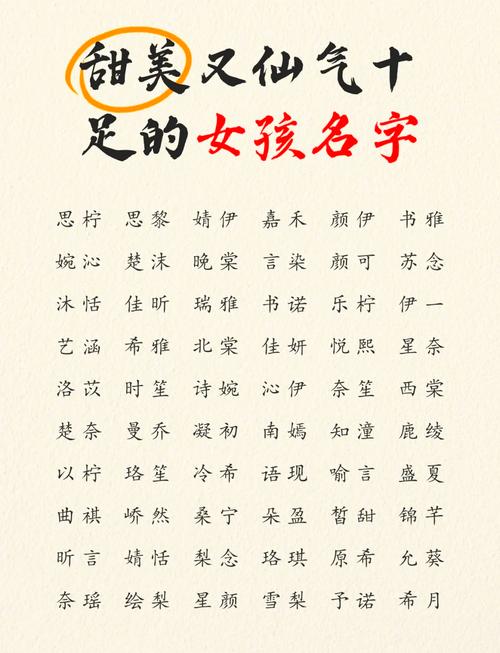 甜美又仙气十
足的女孩名字
思柠 思黎 婧伊 嘉禾 颜伊 书雅
婉沁 楚沫 晚棠 言染 颜可 苏念
沐恬 佳昕 瑞雅 书诺 乐柠 伊一
艺涵 希雅 北棠 佳妍 悦熙 星奈
洛苡 时笙 诗婉 沁伊 奈笙 西棠
楚奈 曼乔 凝初 南嫣 知潼 鹿绫
以柠 珞笙 冷希 语现 喻言 盛夏
曲祺 峤然 桑宁 朵盈 皙甜 锦芊
昕言 婧恬 梨念 珞琪 原希 允葵
奈瑶 绘梨 星颜 雪梨 予诺 希月